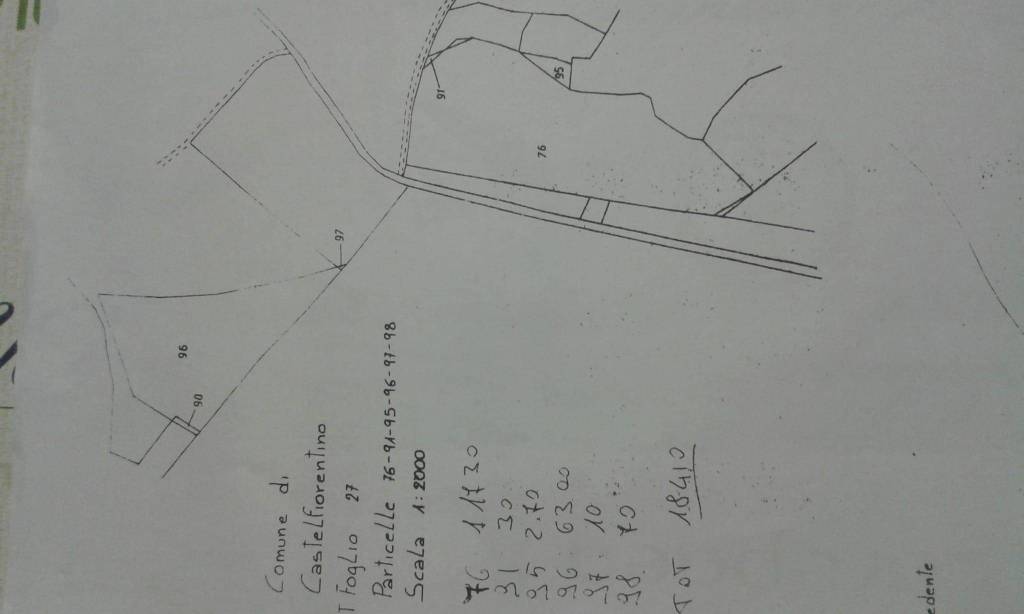 Comune di
Castelfiorentino
Foglio 27
Particelle 76-91-95-96-97-98
Scala 1:2000
76 1 17 30
91 30
95 2.70
96. 63 00
97. 10
98. 70
TOT 18410
96
90
97
91
95
76
edente